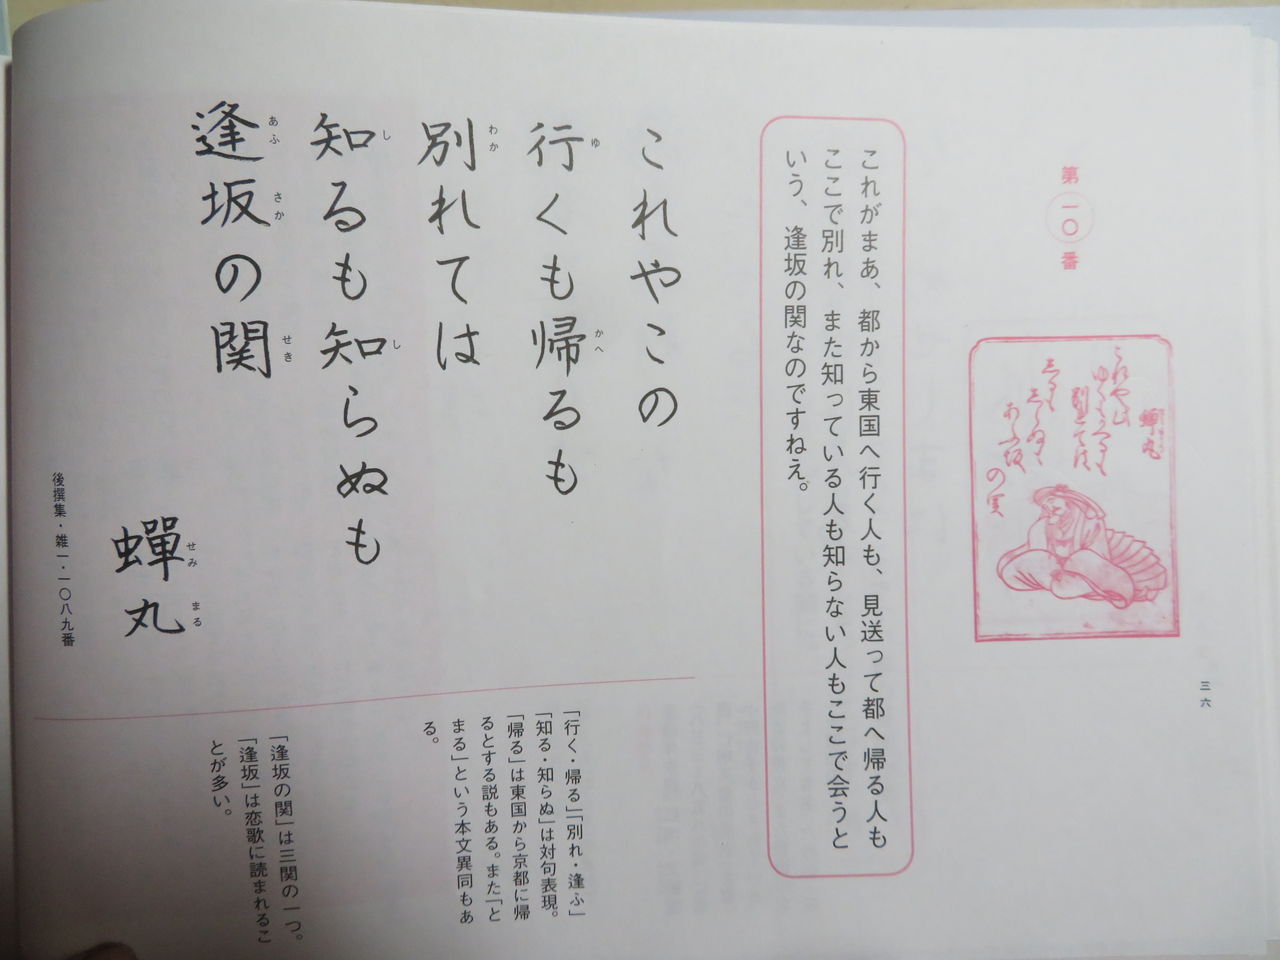 三六
第一〇番
蝉丸
これがまあ、都から東国へ行く人も、見送って都へ帰る人も
ここで別れ、また知っている人も知らない人もここで会うと
いう、逢坂の関なのですねえ。
これやこの
行くも帰るも
ゆ
かへ
別れては
わか
知るも知らぬも
し
し
逢坂の関
あふ
さか
せき
蟬丸
せみ
まる
後撰集・雑一・一〇八九番
「行く・帰る」「別れ・逢ふ」
「知る・知らぬ」は対句表現。
「帰る」は東国から京都に帰
るとする説もある。また「と
まる」という本文異同もあ
る。
「逢坂の関」は三関の一つ。
「逢坂」は恋歌に読まれるこ
とが多い。